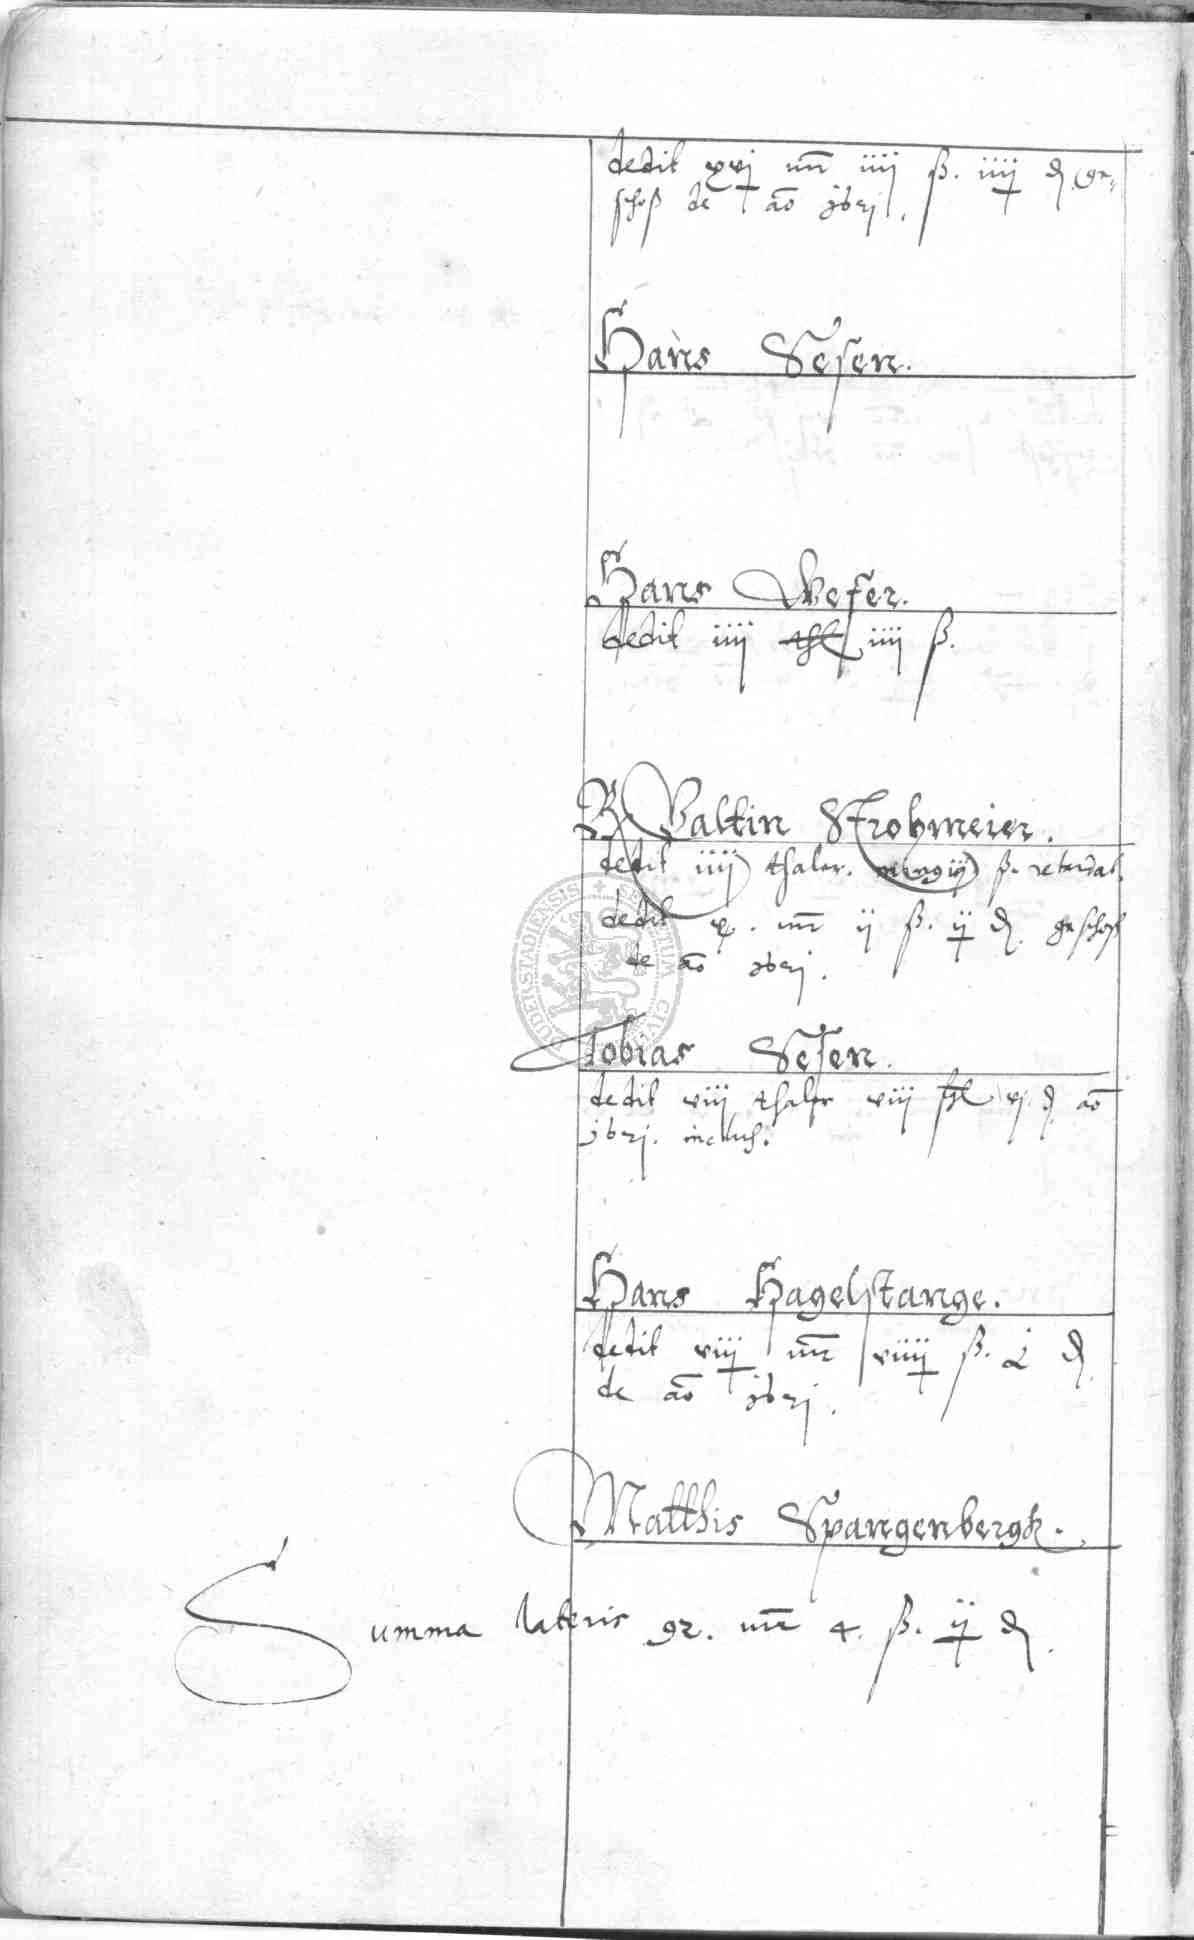 dedit xvj mr iiij ß. iiij d ge,
schoß de ao 1601.
Hans Sesen.
Hans Weser.
dedit iiij thl iiij ß.
B Valtin Strohmeier.
dedit iiij thaler. ß. retardat.
dedit x. mr ij ß. ij d. geschoß
de ao 1601.
Tobias Sesen.
dedit viij thaler viij ßl vj d ao
1601. inclus.
Hans Hagelstange.
dedit viij mr viiij ß. d
de ao 1601.
Matthis Spangenbergk.
Summa lateris 92. mr 4. ß. ij d.